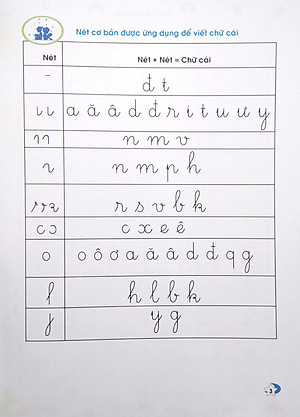 Nét cơ bản được ứng dụng để viết chữ cái
Nét Nét + Nét = Chữ cái
- đ t
ι ι a ă â d đ r i t u ư y
n m v
n m p h
r s v b k
c ɔ c x e ê
o o ô ơ a ă â d đ q g
l h l b k
j y g
3